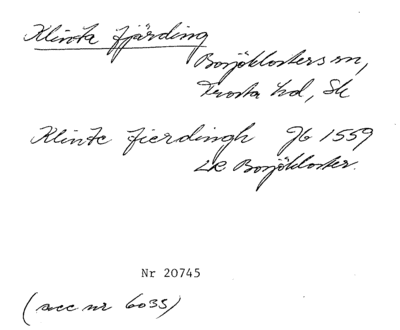 Klinta fjärding
Bosjöklosters sn,
Frosta hd, Sk
Klinte fierdingh Jb 1559
LR Bosjökloster.
Nr 20745
(acc nr 6035)